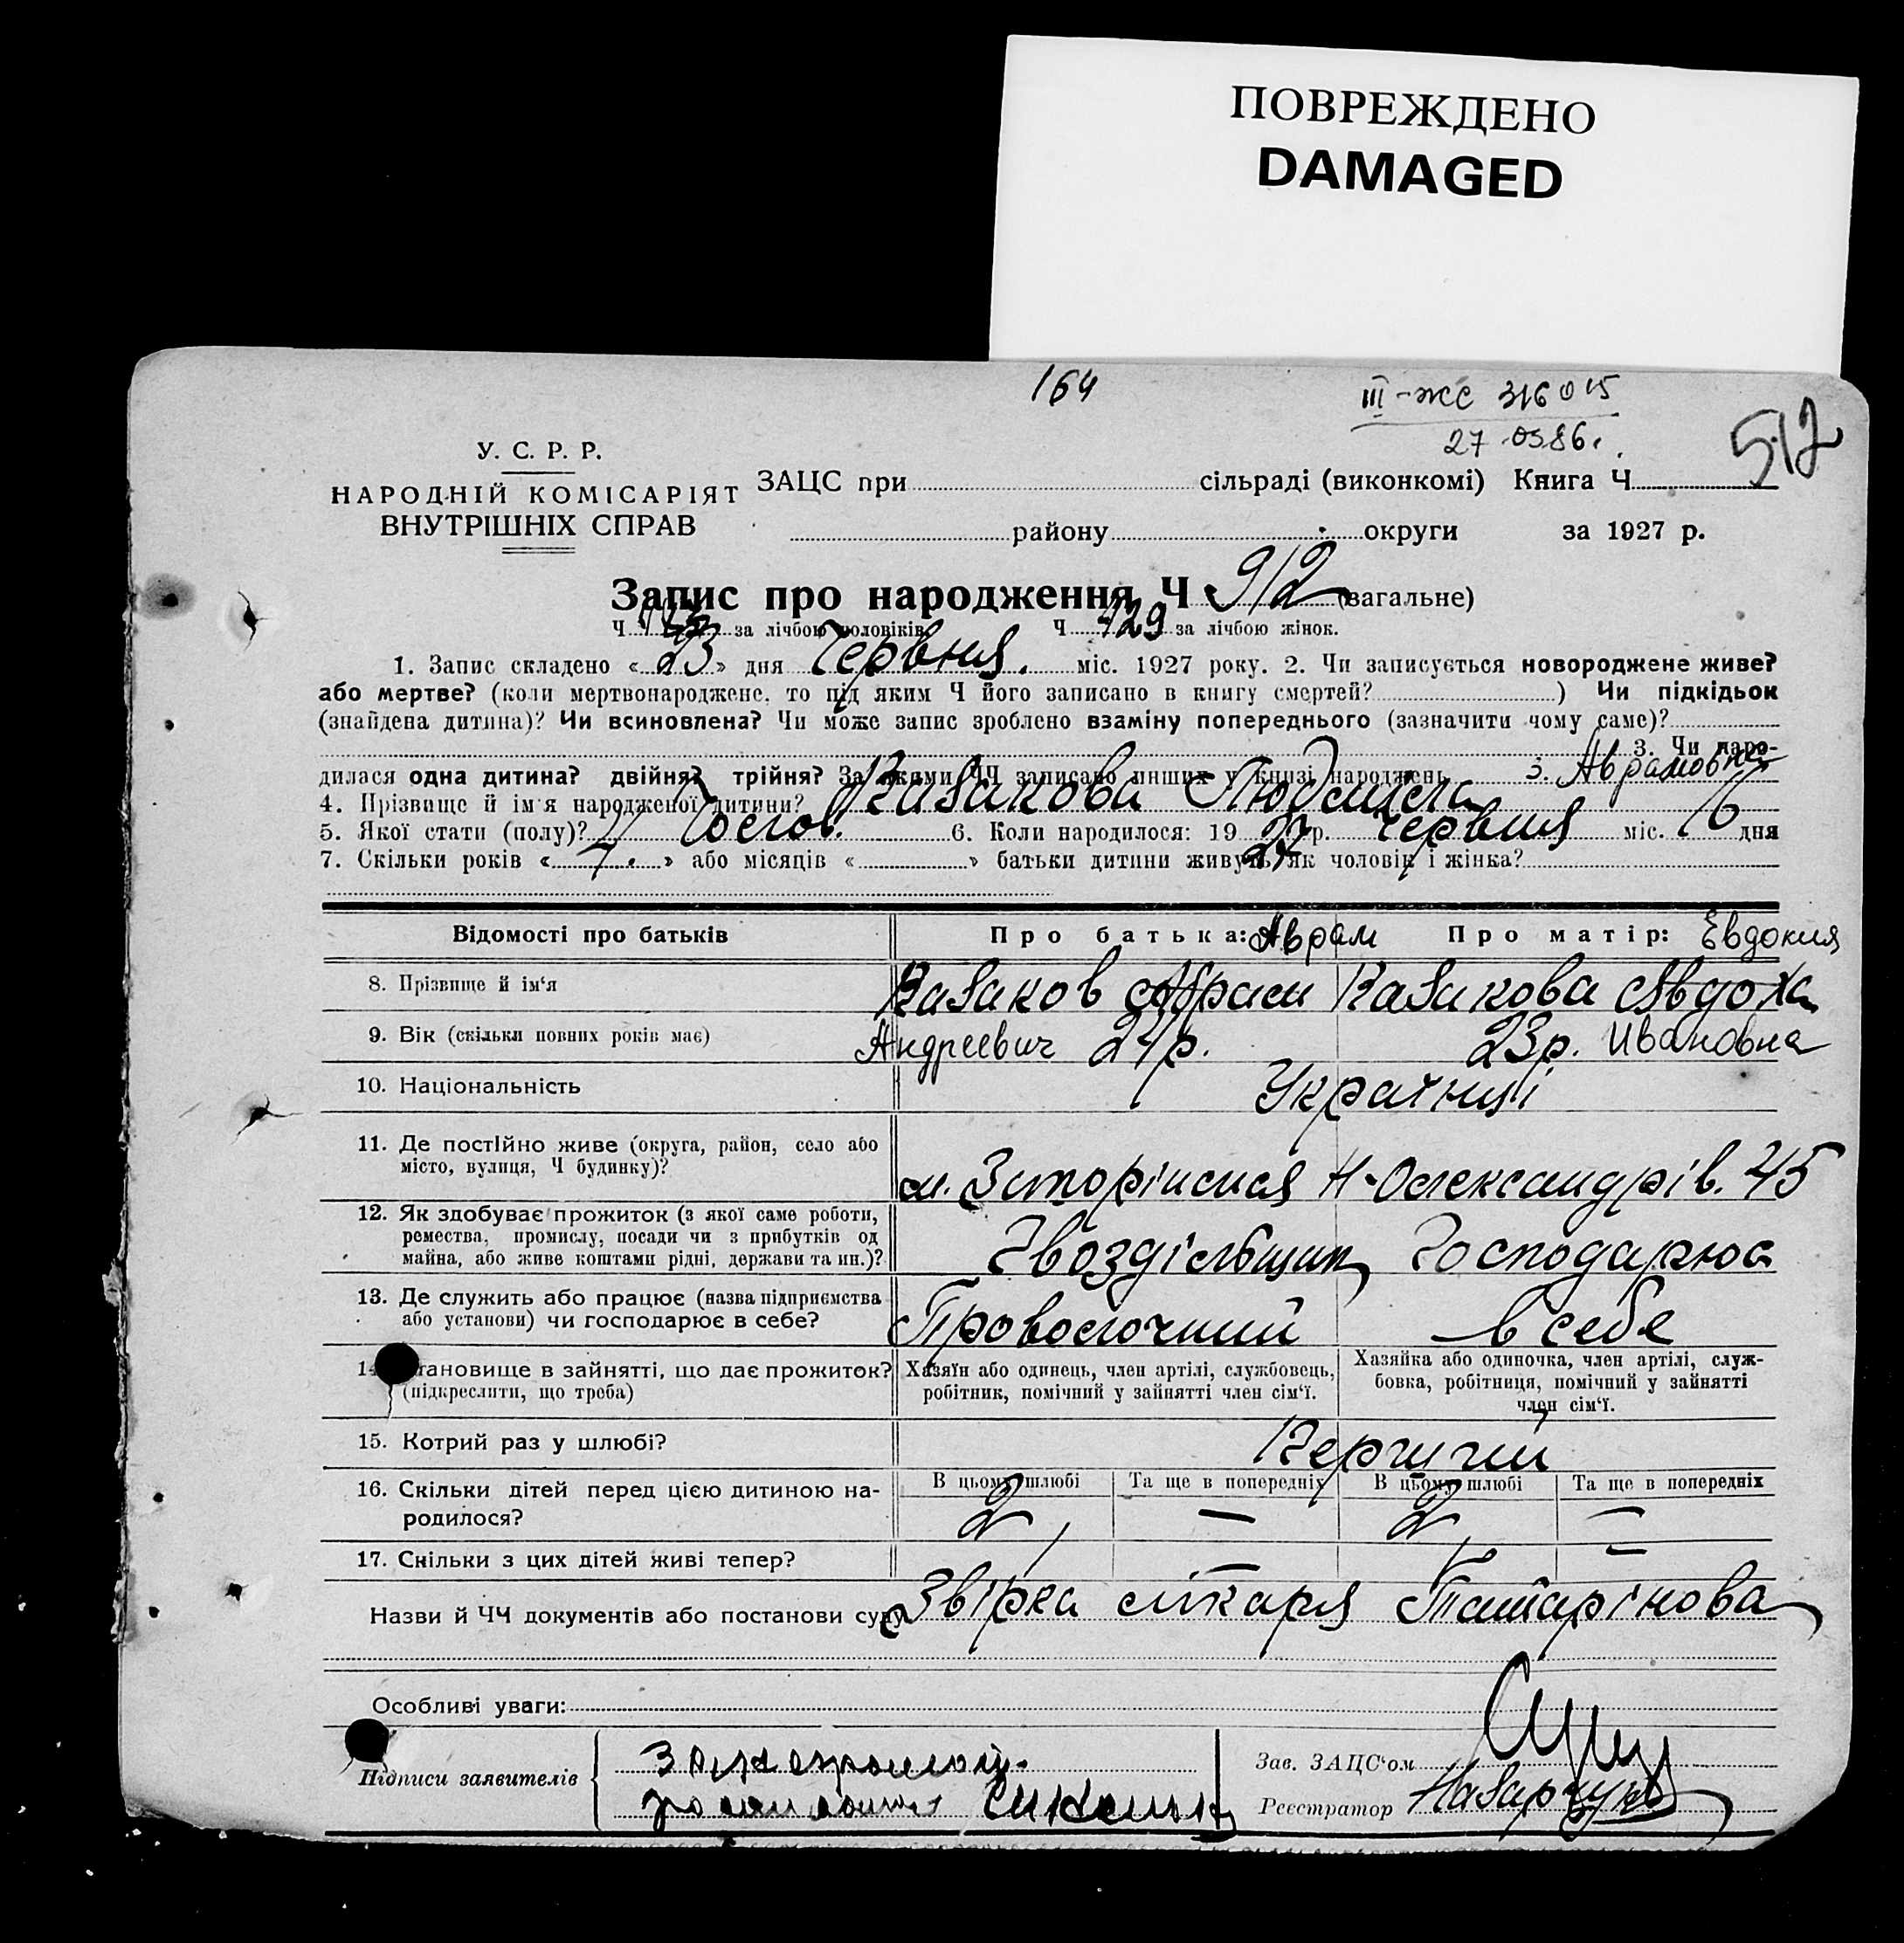 ПОВРЕЖДЕНО
DAMAGED
164
III-ЖС 316015
27.0386.
512
У. С. Р. Р.
НАРОДНІЙ КОМІСАРІЯТ
ВНУТРІШНІХ СПРАВ
ЗАЦС при сільраді (виконкомі) Книга Ч
району округи за 1927 р.
Запис про народження Ч 912 (загальне)
Ч за лічбою чоловіків. Ч 429 за лічбою жінок.
1. Запис складено «23» дня Червня. міс. 1927 року. 2. Чи записується новороджене живе?
або мертве? (коли мертвонароджене, то під яким Ч його записано в книгу смертей? ) Чи підкідьок
(знайдена дитина)? Чи всиновлена? Чи може запис зроблено взаміну попереднього (зазначити чому саме)?
3. Чи наро-
дилася одна дитина? двійня? трійня? За якими ЧЧ записано инших у книзі народжень 3. Аврамовна
4. Прізвище й ім'я народженої дитини? Казакова Людмила
5. Якої стати (полу)? 6. Коли народилося: 19 27 р. червня міс. 16 дня
7. Скільки років « 7. » або місяців « » батьки дитини живуть як чоловік і жінка?
Відомості про батьків Про батька: Аврам Про матір: Евдокия
8. Прізвище й ім'я Казаков Абрам Казакова Явдоха
9. Вік (скільки повних років має) Андреевич 24р. 23р. Ивановна
10. Національність Українці
11. Де постійно живе (округа, район, село або
місто, вулиця, Ч будинку)?
Н-Олександрів. 45
12. Як здобуває прожиток (з якої саме роботи,
ремества, промислу, посади чи з прибутків од
майна, або живе коштами рідні, держави та ин.)?
Гвоздільщик Господарює
13. Де служить або працює (назва підприємства
або установи) чи господарює в себе?
Проволочний в себе
14 тановище в зайнятті, що дає прожиток?
(підкреслити, що треба)
Хазяїн або одинець, член артілі, службовець,
робітник, помічний у зайнятті член сім'ї.
Хазяйка або одиночка, член артілі, служ-
бовка, робітниця, помічний у зайнятті
член сім'ї.
15. Котрий раз у шлюбі? Перший
16. Скільки дітей перед цією дитиною на-
родилося?
В цьому шлюбі Та ще в попередніх В цьому шлюбі Та ще в попередніх
2 — 2 —
17. Скільки з цих дітей живі тепер? 1 — 1 —
Назви й ЧЧ документів або постанови суду Звірка лікаря Татарінова
Особливі уваги:
Підписи заявителів
Зав. ЗАЦС'ом
Реєстратор Назарчук